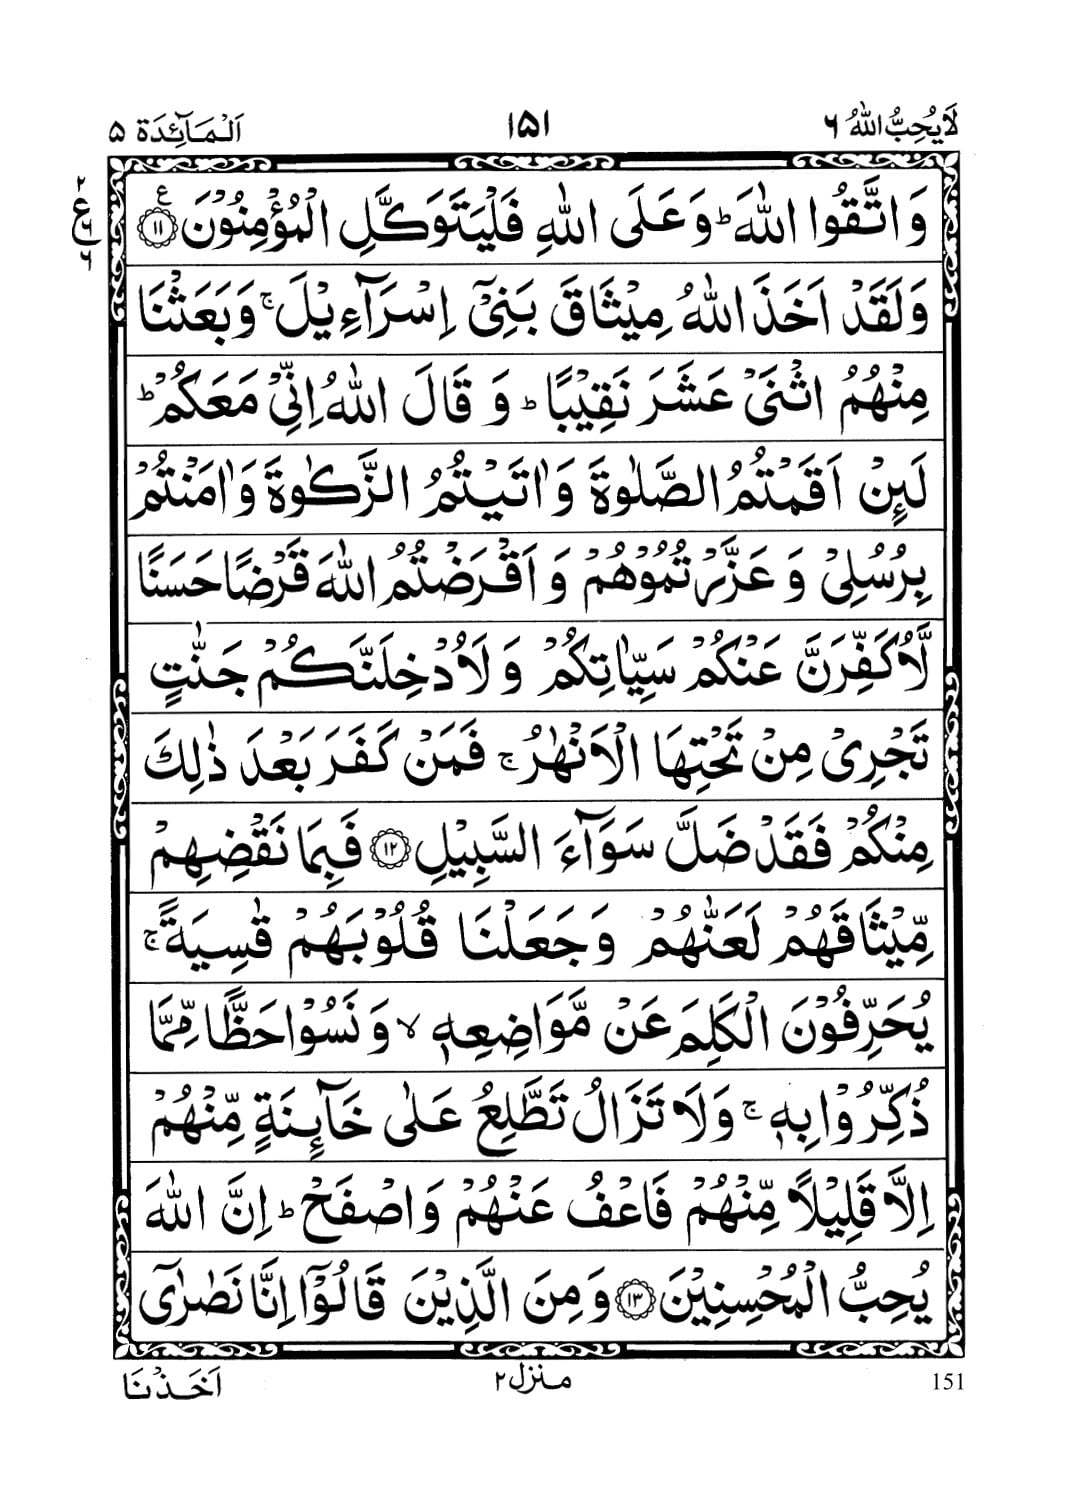 لَا يُحِبُّ اللّٰهُ ٦ ١٥١ اَلْمَآئِدَة ٥
وَاتَّقُوا اللّٰهَ ؕ وَعَلَى اللّٰهِ فَلْيَتَوَكَّلِ الْمُؤْمِنُوْنَ ﴿١١﴾ ع
٢ ع ٦ ٦
وَلَقَدْ اَخَذَ اللّٰهُ مِيْثَاقَ بَنِيْۤ اِسْرَآءِيْلَ ۚ وَبَعَثْنَا
مِنْهُمُ اثْنَيْ عَشَرَ نَقِيْبًا ؕ وَ قَالَ اللّٰهُ اِنِّيْ مَعَكُمْ ؕ
لَىِٕنْ اَقَمْتُمُ الصَّلٰوةَ وَاٰتَيْتُمُ الزَّكٰوةَ وَاٰمَنْتُمْ
بِرُسُلِيْ وَ عَزَّرْتُمُوْهُمْ وَ اَقْرَضْتُمُ اللّٰهَ قَرْضًا حَسَنًا
لَّاُكَفِّرَنَّ عَنْكُمْ سَيِّاٰتِكُمْ وَ لَاُدْخِلَنَّكُمْ جَنّٰتٍ
تَجْرِيْ مِنْ تَحْتِهَا الْاَنْهٰرُ ۚ فَمَنْ كَفَرَ بَعْدَ ذٰلِكَ
مِنْكُمْ فَقَدْ ضَلَّ سَوَآءَ السَّبِيْلِ ﴿١٢﴾ فَبِمَا نَقْضِهِمْ
مِّيْثَاقَهُمْ لَعَنّٰهُمْ وَجَعَلْنَا قُلُوْبَهُمْ قٰسِيَةً ۚ
يُحَرِّفُوْنَ الْكَلِمَ عَنْ مَّوَاضِعِهٖ ۙ وَ نَسُوْا حَظًّا مِّمَّا
ذُكِّرُوْا بِهٖ ۚ وَلَا تَزَالُ تَطَّلِعُ عَلٰى خَآىِٕنَةٍ مِّنْهُمْ
اِلَّا قَلِيْلًا مِّنْهُمْ فَاعْفُ عَنْهُمْ وَاصْفَحْ ؕ اِنَّ اللّٰهَ
يُحِبُّ الْمُحْسِنِيْنَ ﴿١٣﴾ وَمِنَ الَّذِيْنَ قَالُوْۤا اِنَّا نَصٰرٰۤى
151 منزل ٢ اَخَذْنَا